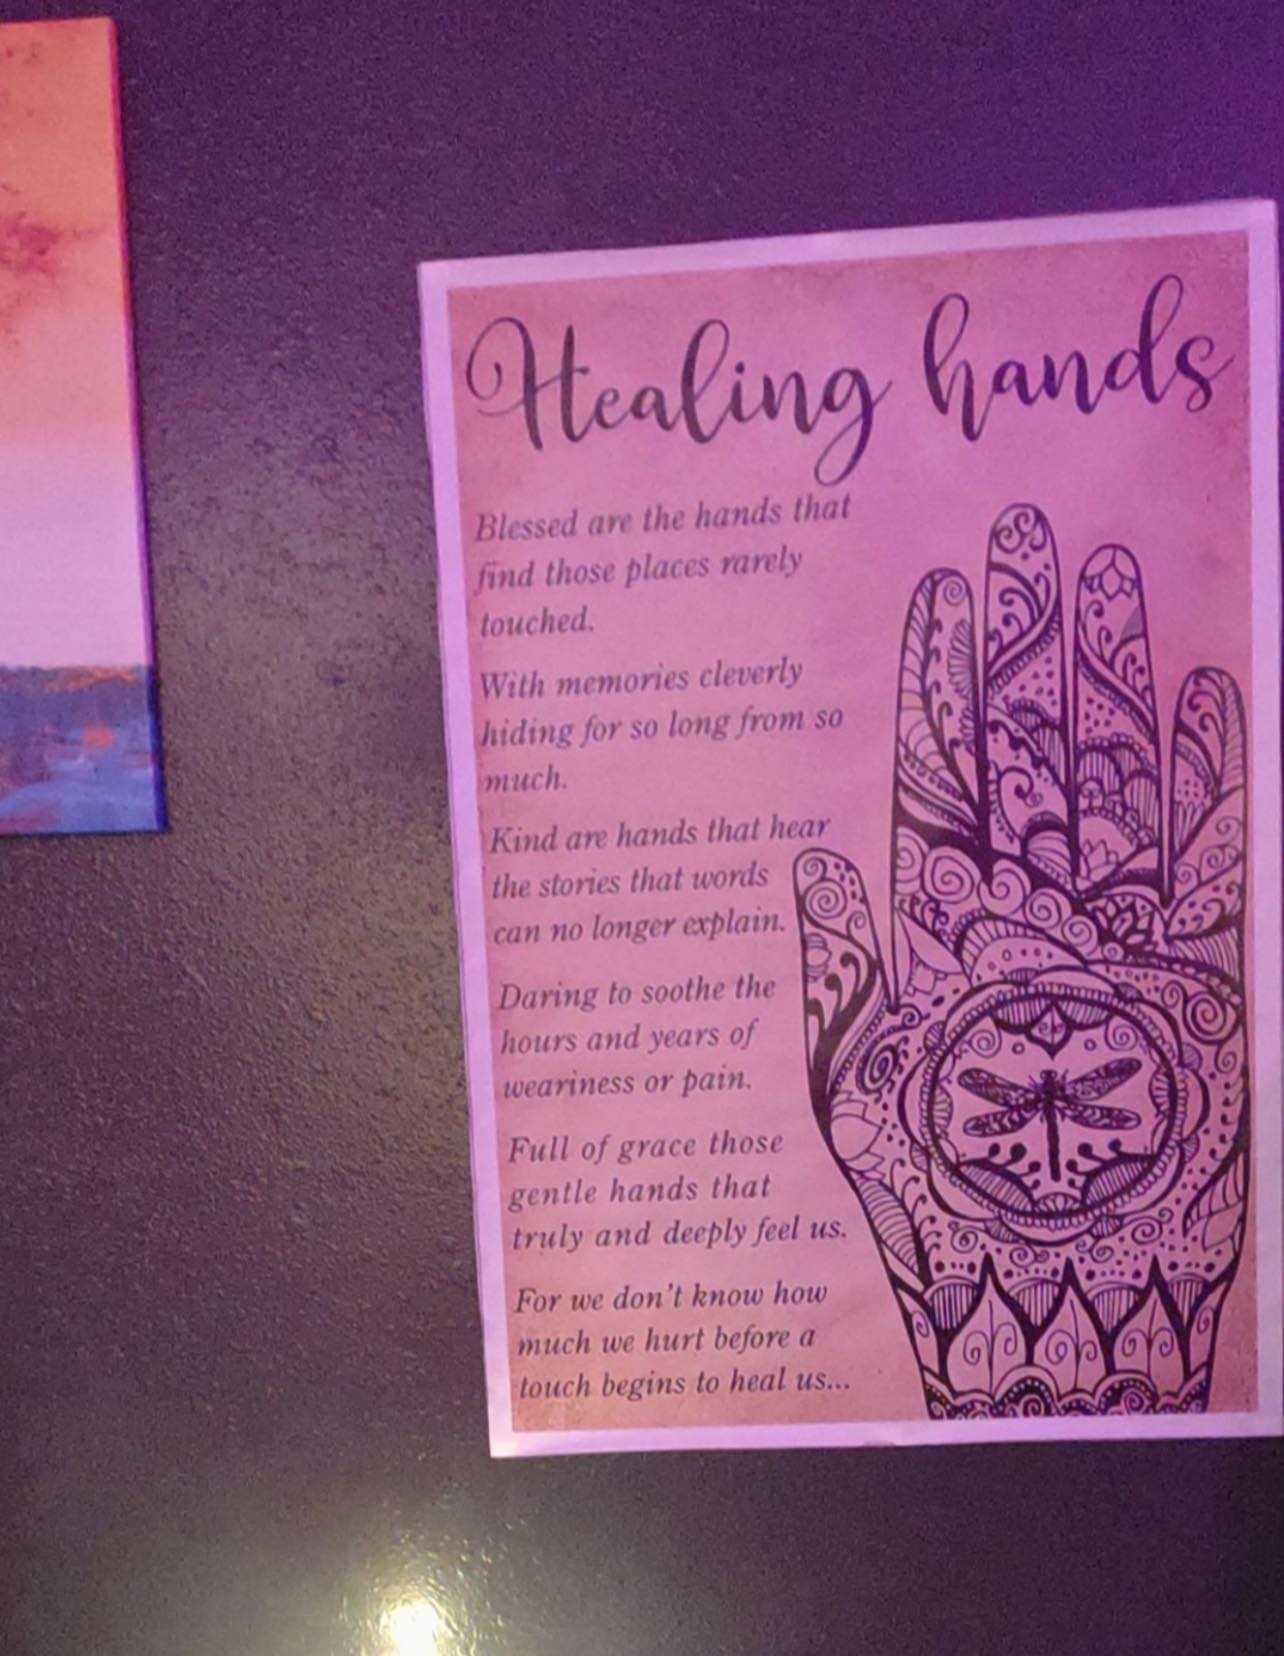 Healing hands
Blessed are the hands that
find those places rarely
touched.
With memories cleverly
hiding for so long from so
much.
Kind are hands that hear
the stories that words
can no longer explain.
Daring to soothe the
hours and years of
weariness or pain.
Full of grace those
gentle hands that
truly and deeply feel us.
For we don't know how
much we hurt before a
touch begins to heal us...